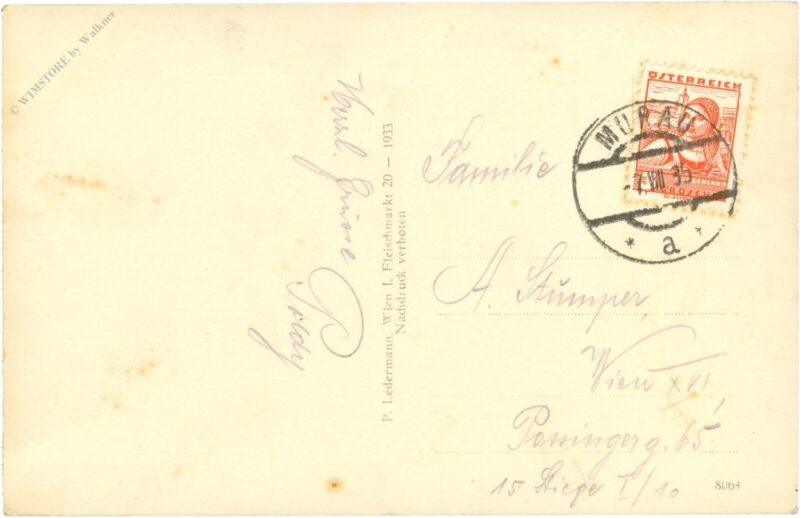 © WIMSTORE by Walkner
Herzl. Grüsse
Poldy
P. Ledermann, Wien I, Fleischmarkt 20 — 1933
Nachdruck verboten
ÖSTERREICH
MURAU
7. VIII. 35
* a *
GROSCHEN
Familie
A. Stumper,
Wien XVI,
Possingerg. 65
15 Stiege I/10
8064